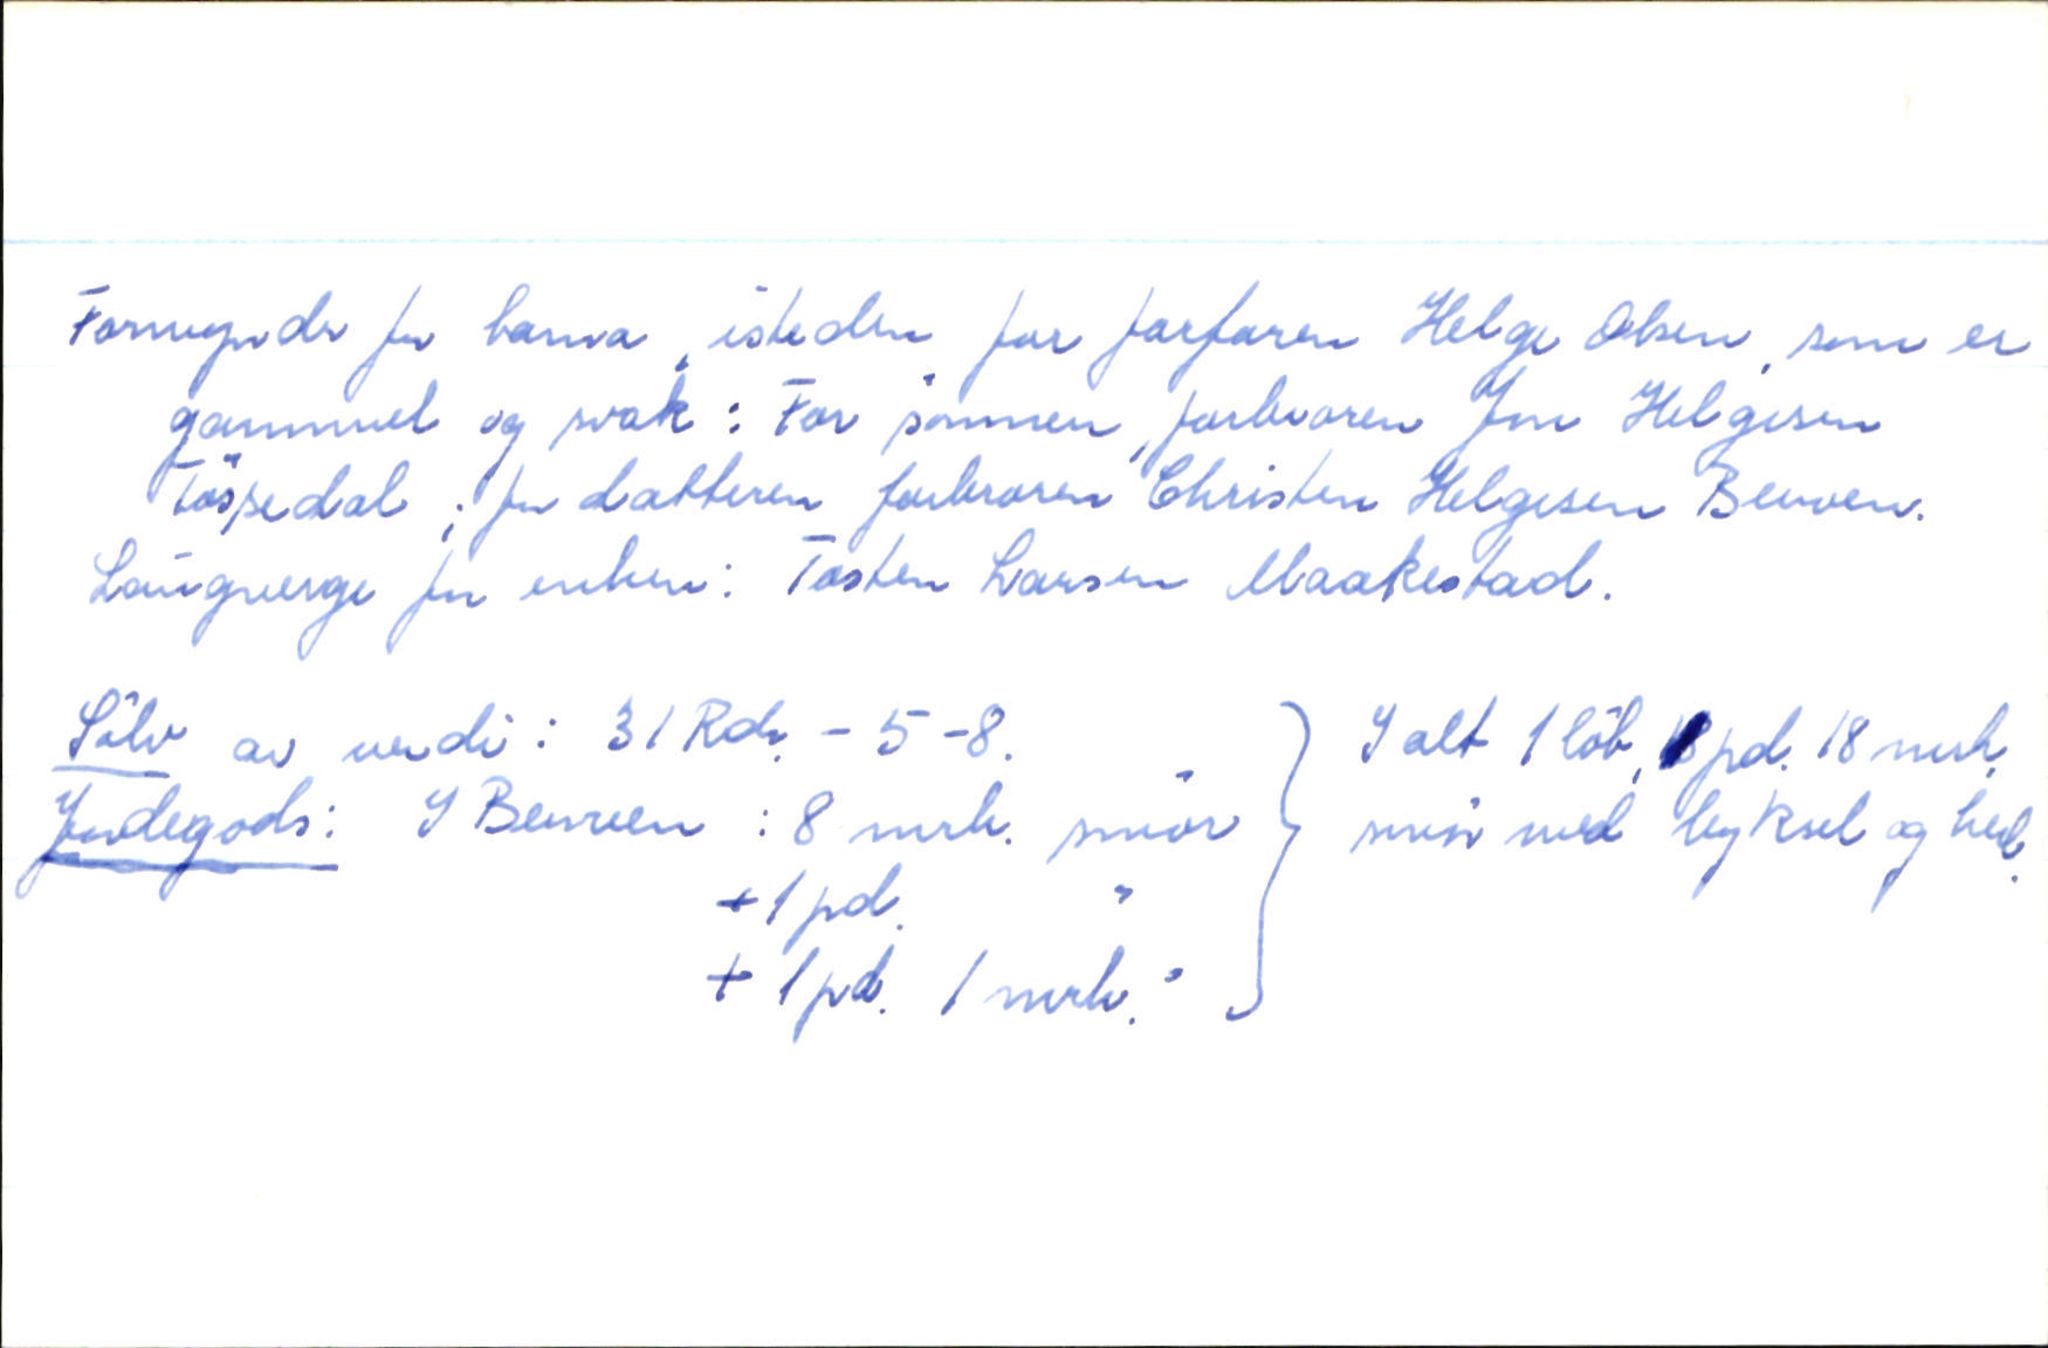 Formynder for barna, isteden for farfaren Helge Olsen, som er
gammel og svak: For sönnen, farbroren Jon Helgesen
Töspedal; for datteren farbroren Christen Helgesen Beuven.
Laugverge for enken: Tosten Larsen Maakestad.
Sölv av verdi: 31 Rdr. - 5 - 8.
Jordegods: I Beurven: 8 mrk. smör
+ 1 pd. "
+ 1 pd. 1 mrk. "
I alt 1 löb, pd. 18 mrk.
smör med byksel og herl.